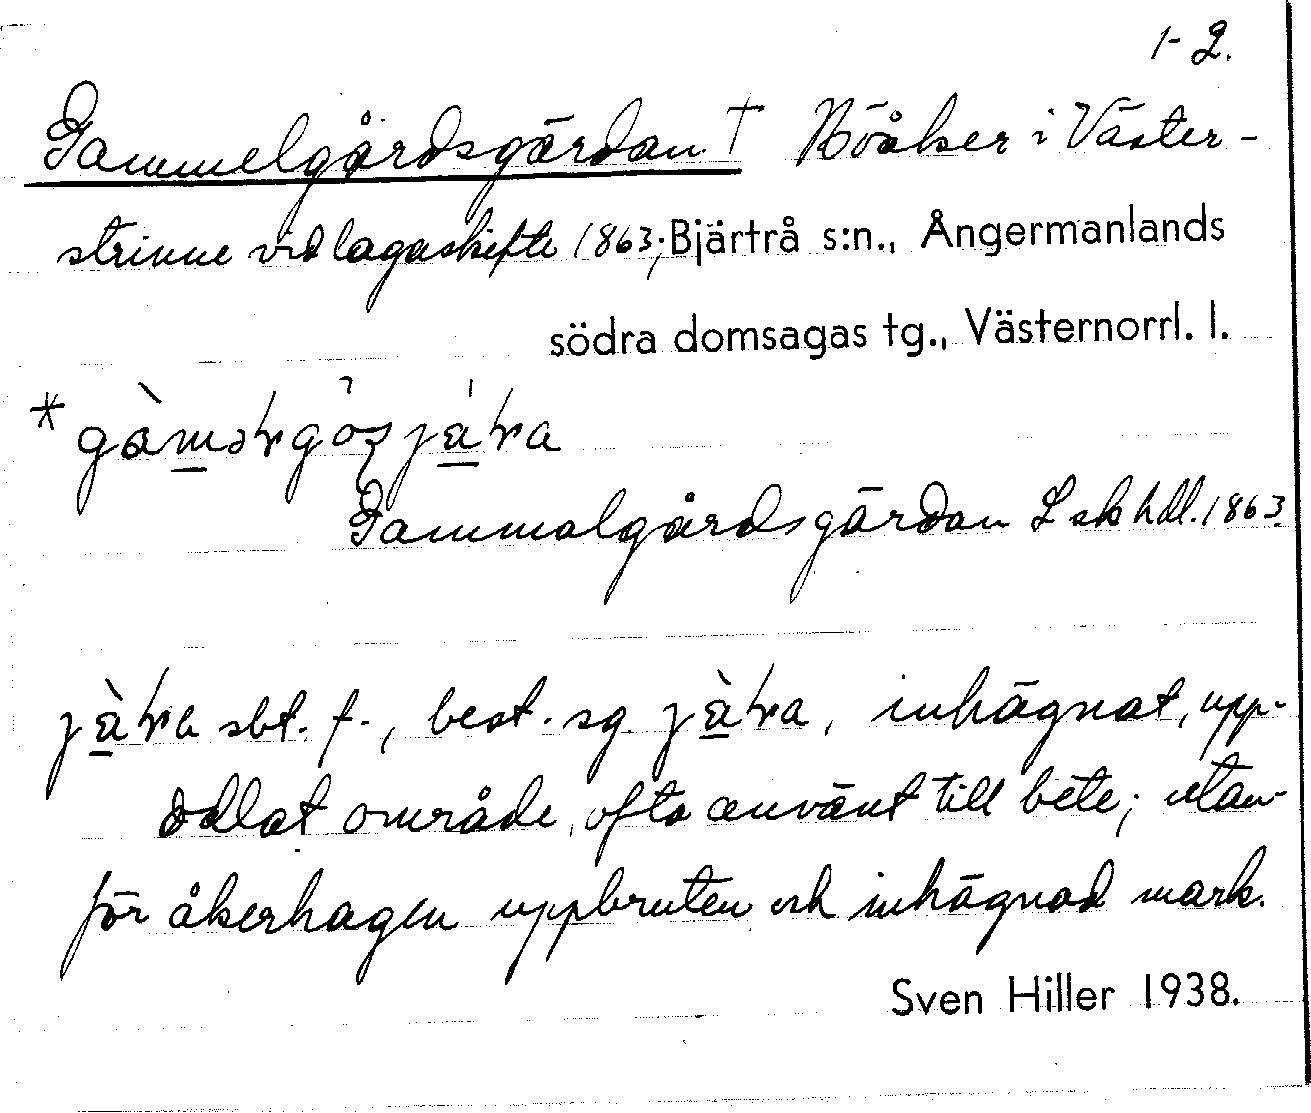 1-2.
Gammelgårdsgärdan † Nöåker i Väster-
strinne vid lagaskifte 1863; Bjärtrå s:n., Ångermanlands
södra domsagas tg., Västernorrl. l.
Gammalgårdsgärdan L sk hdl. 1863.
sbt. f., best. sg. inhägnat, upp-
odlat område, ofta använt till bete; utan-
för åkerhagen uppbruten och inhägnad mark.
Sven Hiller 1938.